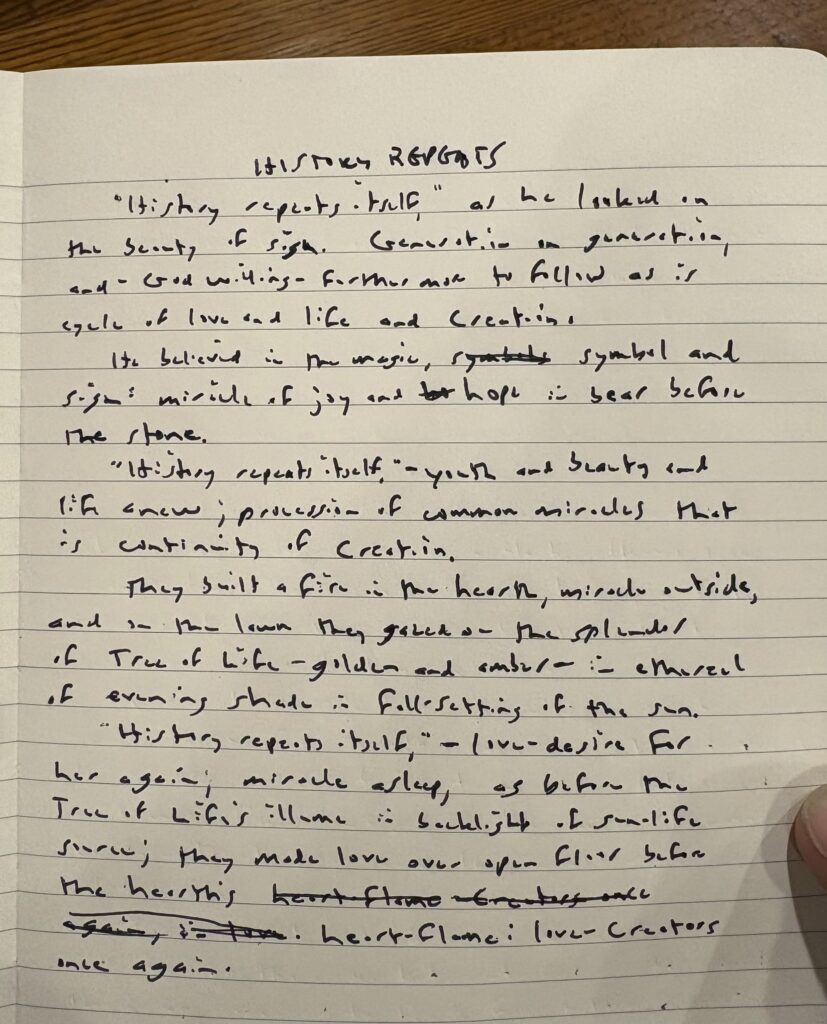 HISTORY REPEATS
"History repeats itself," as he looked on
the beauty of sign. Generation on generation,
and - God willing - further more to follow as is
cycle of love and life and Creation.
He believed in the magic, symbols symbol and
sign: miracle of joy and hope in bear before
the stone.
"History repeats itself," - youth and beauty and
life anew; procession of common miracles that
is continuity of Creation.
They built a fire in the hearth, miracle outside,
and on the lawn they gazed on the splendor
of Tree of Life - golden and amber - in ethereal
of evening shade in Fall-setting of the sun.
"History repeats itself," - love-desire for
her again; miracle asleep, as before the
Tree of Life's illume in backlight of sun-life
source; they made love over open floor before
the hearth's heart-flame - Creators once
again, in love. heart-flame: love-Creators
once again.